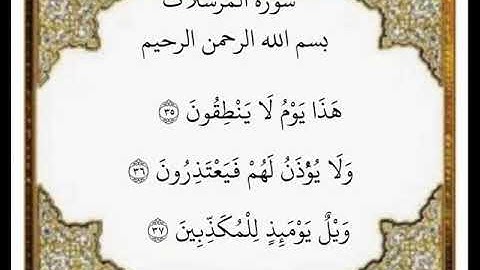 سورة المرسلات
بسم الله الرحمن الرحيم
هَذَا يَوْمُ لَا يَنْطِقُونَ ٣٥
وَلَا يُؤْذَنُ لَهُمْ فَيَعْتَذِرُونَ ٣٦
وَيْلٌ يَوْمَئِذٍ لِلْمُكَذِّبِينَ ٣٧